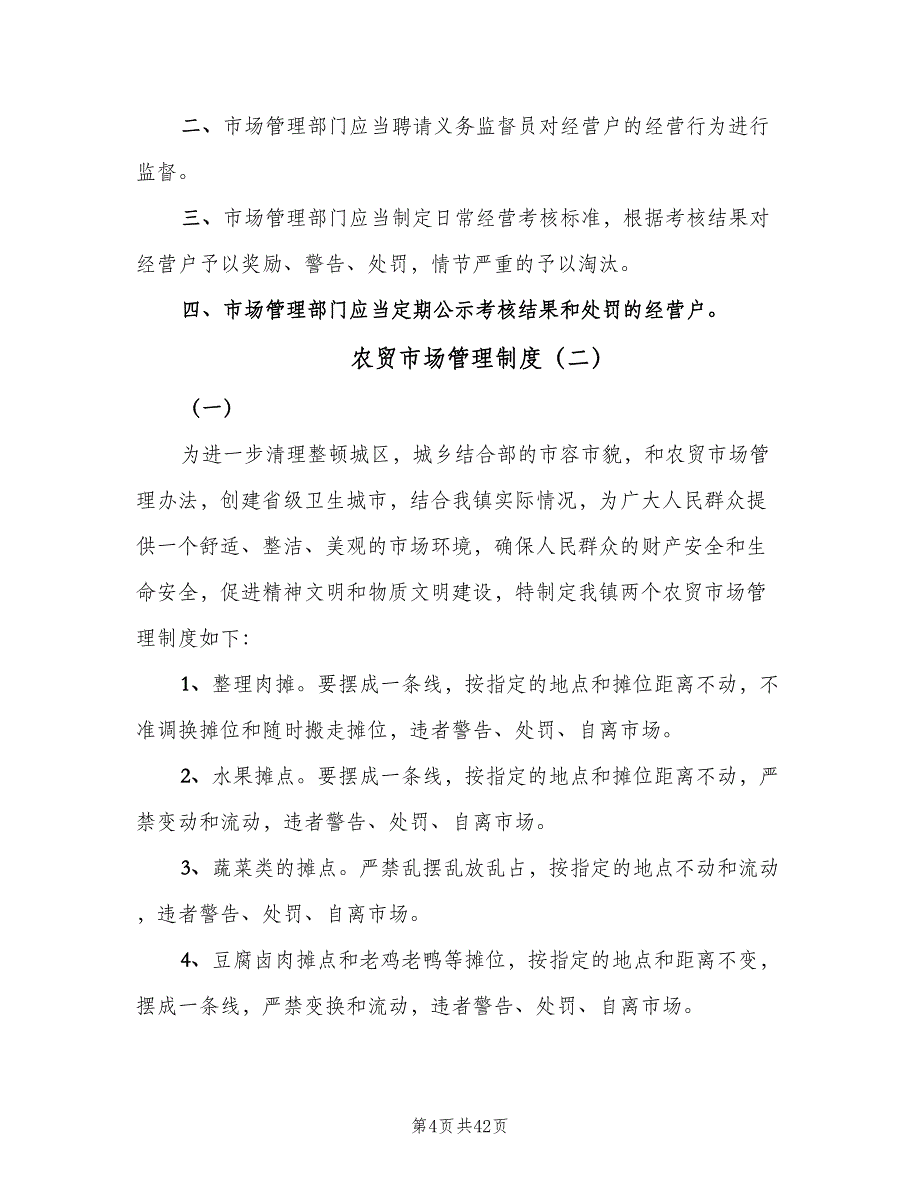 二、市场管理部门应当聘请义务监督员对经营户的经营行为进行
监督。
三、市场管理部门应当制定日常经营考核标准，根据考核结果对
经营户予以奖励、警告、处罚，情节严重的予以淘汰。
四、市场管理部门应当定期公示考核结果和处罚的经营户。
农贸市场管理制度（二）
（一）
为进一步清理整顿城区，城乡结合部的市容市貌，和农贸市场管
理办法，创建省级卫生城市，结合我镇实际情况，为广大人民群众提
供一个舒适、整洁、美观的市场环境，确保人民群众的财产安全和生
命安全，促进精神文明和物质文明建设，特制定我镇两个农贸市场管
理制度如下：
1、整理肉摊。要摆成一条线，按指定的地点和摊位距离不动，不
准调换摊位和随时搬走摊位，违者警告、处罚、自离市场。
2、水果摊点。要摆成一条线，按指定的地点和摊位距离不动，严
禁变动和流动，违者警告、处罚、自离市场。
3、蔬菜类的摊点。严禁乱摆乱放乱占，按指定的地点不动和流动
，违者警告、处罚、自离市场。
4、豆腐卤肉摊点和老鸡老鸭等摊位，按指定的地点和距离不变，
摆成一条线，严禁变换和流动，违者警告、处罚、自离市场。
第4页共42页